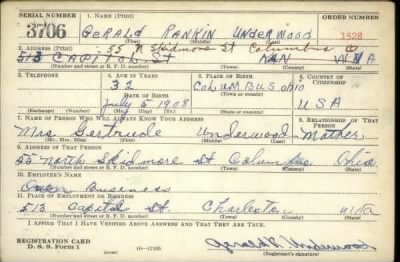 SERIAL NUMBER 1. NAME (Print) ORDER NUMBER
3706 GERALD RANKIN UNDERWOOD 1528
55 N Skidmore St Columbus O
2. ADDRESS (Print)
513 CAPITOL ST KAN W VA
(Number and street or R. F. D. number) (Town) (County) (State)
3. TELEPHONE 4. AGE IN YEARS 5. PLACE OF BIRTH 6. COUNTRY OF CITIZENSHIP
32 COLUMBUS
DATE OF BIRTH (Town or county)
July 5 1908 OHIO USA
(Exchange) (Number) (Mo.) (Day) (Yr.) (State or country)
7. NAME OF PERSON WHO WILL ALWAYS KNOW YOUR ADDRESS 8. RELATIONSHIP OF THAT PERSON
Mrs. Gertrude Underwood Mother
(Mr., Mrs., Miss) (First) (Middle) (Last)
9. ADDRESS OF THAT PERSON
55 North Skidmore St Columbus Ohio
(Number and street or R. F. D. number) (Town) (County) (State)
10. EMPLOYER'S NAME
Own Business
11. PLACE OF EMPLOYMENT OR BUSINESS
513 Capitol St. Charleston W Va
(Number and street or R. F. D. number) (Town) (County) (State)
I AFFIRM THAT I HAVE VERIFIED ABOVE ANSWERS AND THAT THEY ARE TRUE.
REGISTRATION CARD
D. S. S. Form 1 (over) 16—17105 Gerald R. Underwood
(Registrant's signature)